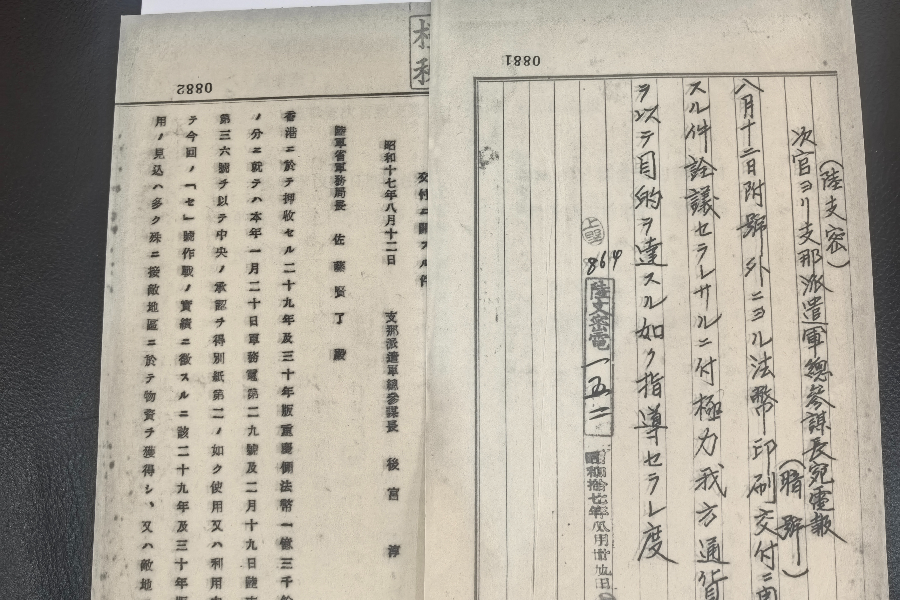 0881
(陸支密)
次官ヨリ支那派遣軍總參謀長宛電報
(暗號)
八月十二日附號外ニヨル法幣印刷交付ニ
スル件詮議セラレサルニ付極力我方通貨
ヲ以テ目的ヲ達スル如ク指導セラレ度
864
陸支密電一五二
0882
交付ニ關スル件
昭和十七年八月十二日 支那派遣軍總參謀長 後宮 淳
陸軍省軍務局長 佐藤賢了殿
香港ニ於テ押收セル二十九年及三十年版重慶側法幣一億三千
ノ分ニ就テハ本年一月二十日軍務電第二九號及二月十九日陸
第三六號ヲ以テ中央ノ承認ヲ得別紙第二ノ如ク使用又ハ利用
テ今回ノ「セ」號作戰ノ實績ニ徵スルニ該二十九年及三十年
用ノ見込ハ多ク殊ニ接敵地區ニ於テ物資ヲ獲得シ、又ハ敵地